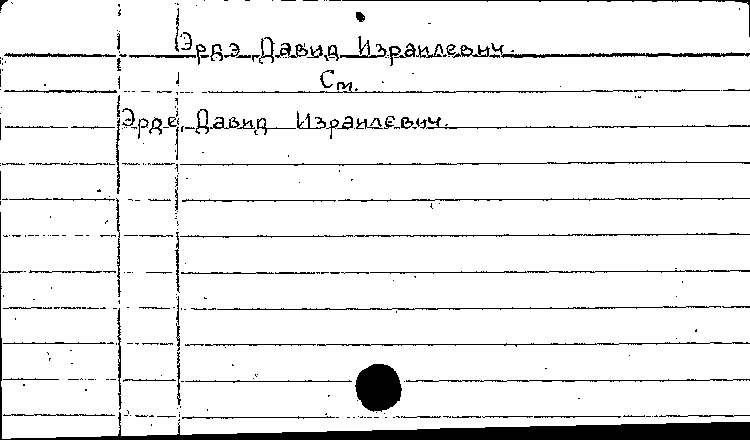 Эрдэ, Давид Израилевич.
См.
Эрде, Давид Израилевич.